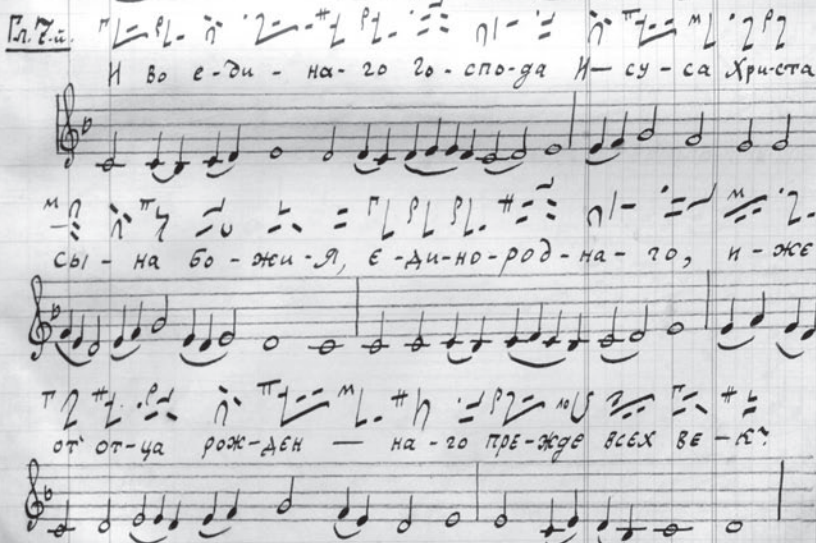 Гл. 7-й.
И во е-ди-на-го го-спо-да И-су-са Хри-ста
сы-на бо-жи-я, е-ди-но-род-на-го, и-же
от от-ца рож-ден-на-го пре-жде всех ве-къ